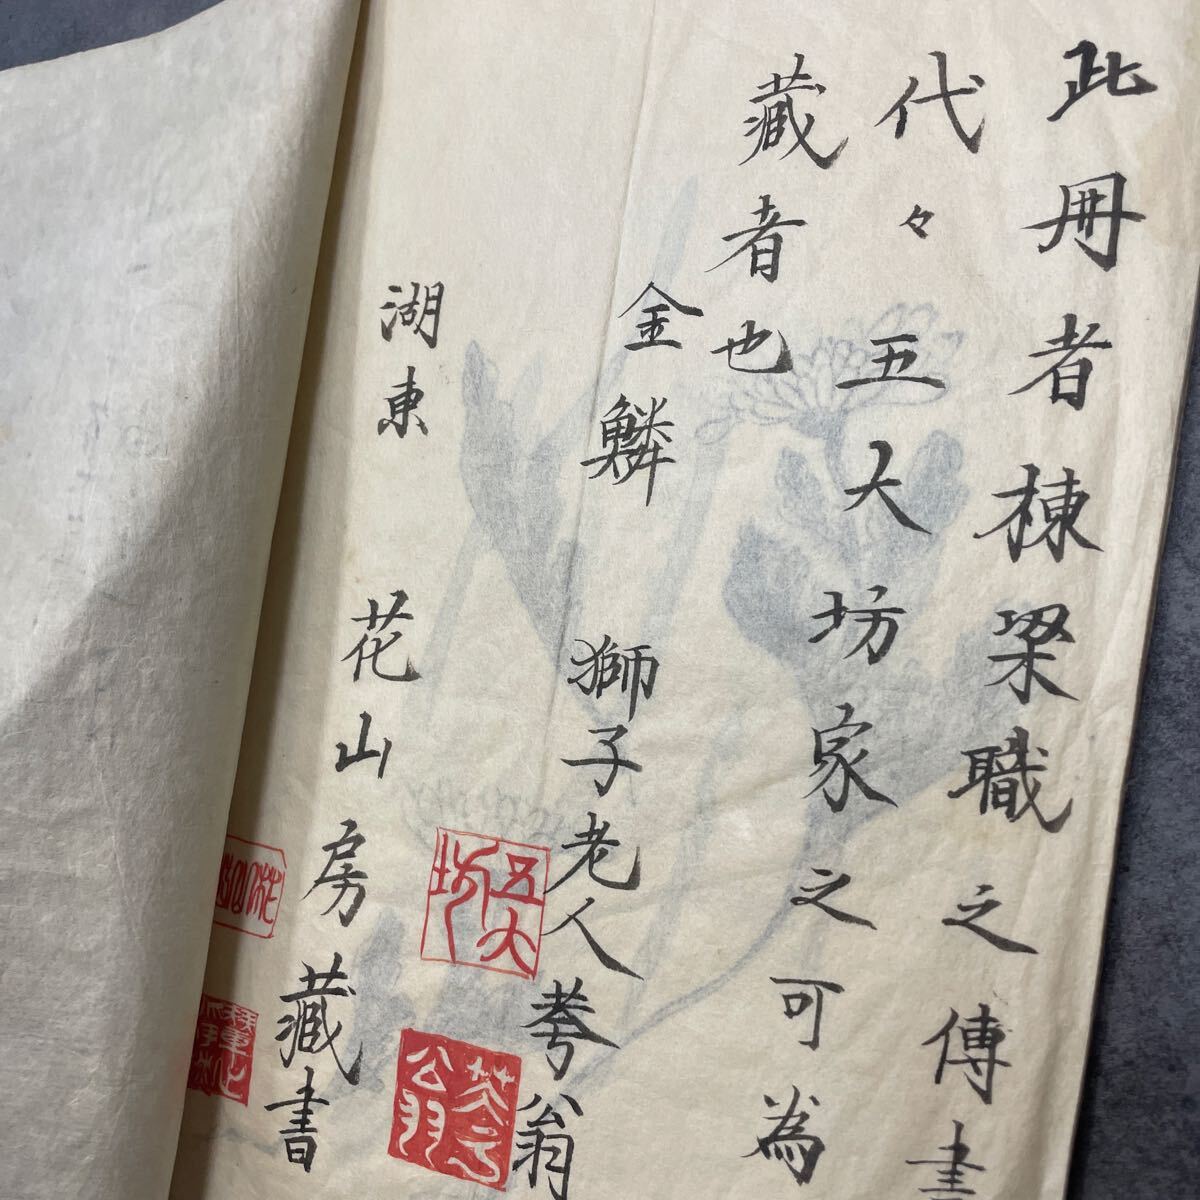 此冊者棟梁職之傳書
代々五大坊家之可為
藏者也
金鱗 獅子老人考翁
五大坊
湖東 花山房藏書